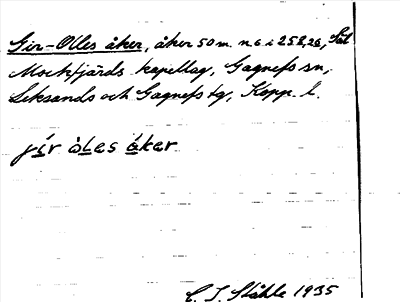 Gir-Olles åker, åker 50 m. n. 6 i 252,26, Säl
Mockfjärds kapellag, Gagnefs sn,
Leksands och Gagnefs tg, Kopp. l.
jír òles åker
C. I. Ståhle 1935